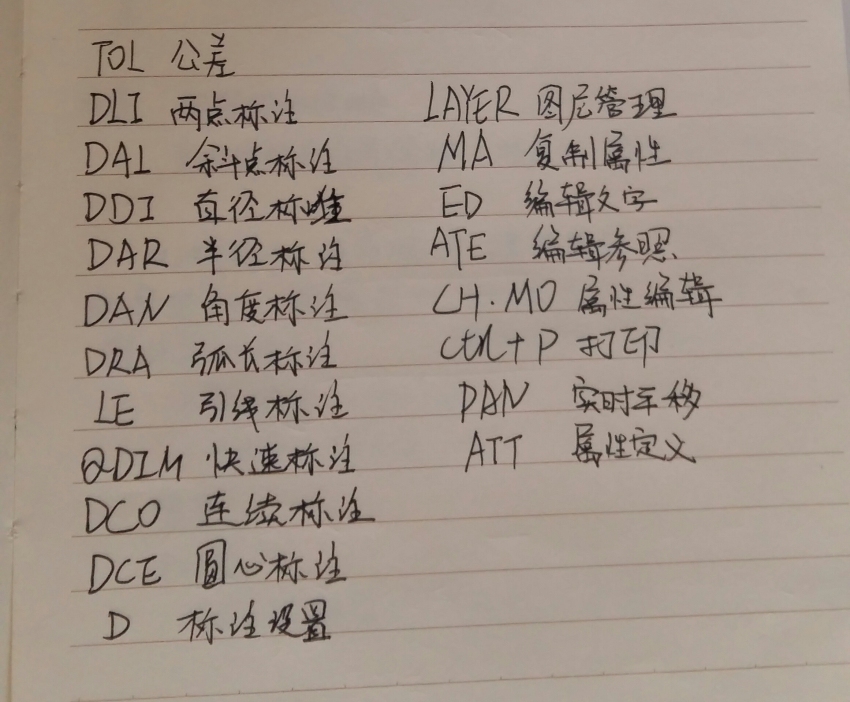 TOL 公差
DLI 两点标注
DAL 斜点标注
DDI 直径标注
DAR 半径标注
DAN 角度标注
DRA 弧长标注
LE 引线标注
QDIM 快速标注
DCO 连续标注
DCE 圆心标注
D 标注设置
LAYER 图层管理
MA 复制属性
ED 编辑文字
ATE 编辑参照
CH.MO 属性编辑
Ctrl+P 打印
PAN 实时平移
ATT 属性定义